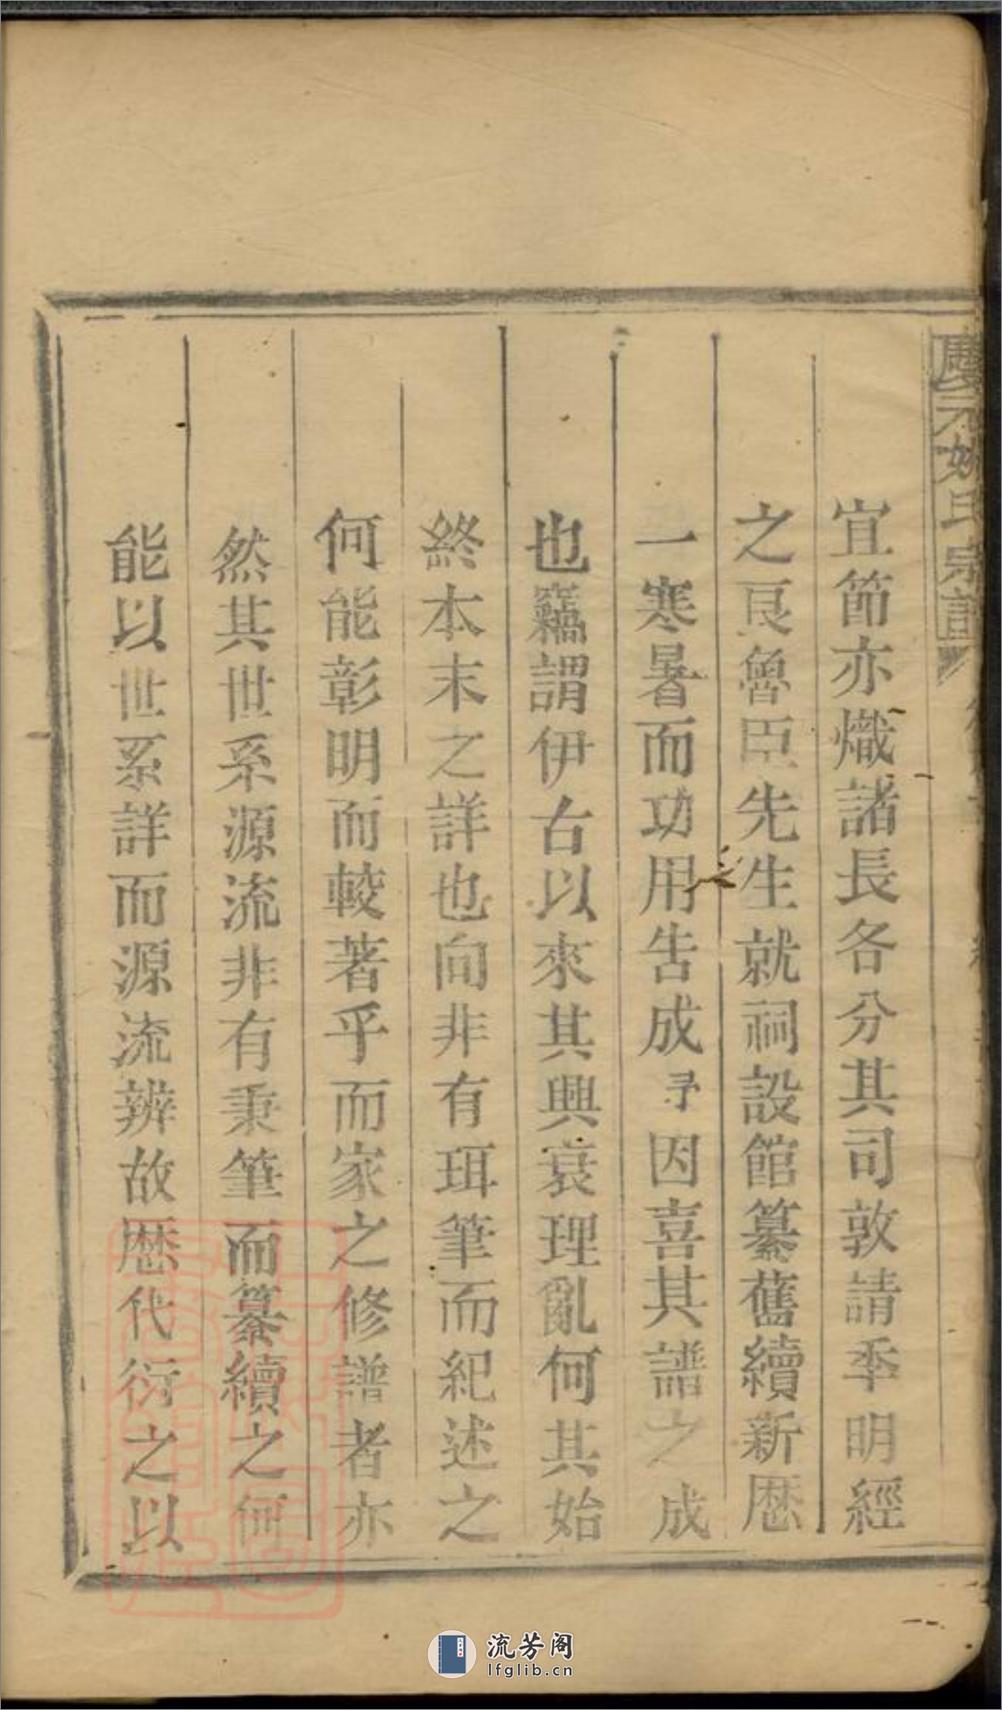 慶元姚氏宗譜
宜節亦熾諸長各分其司敦請季明經
之艮魯臣先生就祠設館纂舊續新歴
一寒暑而功用告成予因喜其譜之成
也竊謂伊古以來其興衰理亂何其始
終本末之詳也向非有珥筆而紀述之
何能彰明而較著乎而家之修譜者亦
然其世系源流非有秉筆而纂續之何
能以世系詳而源流辨故歴代衍之以
流芳阁
lfglib.cn